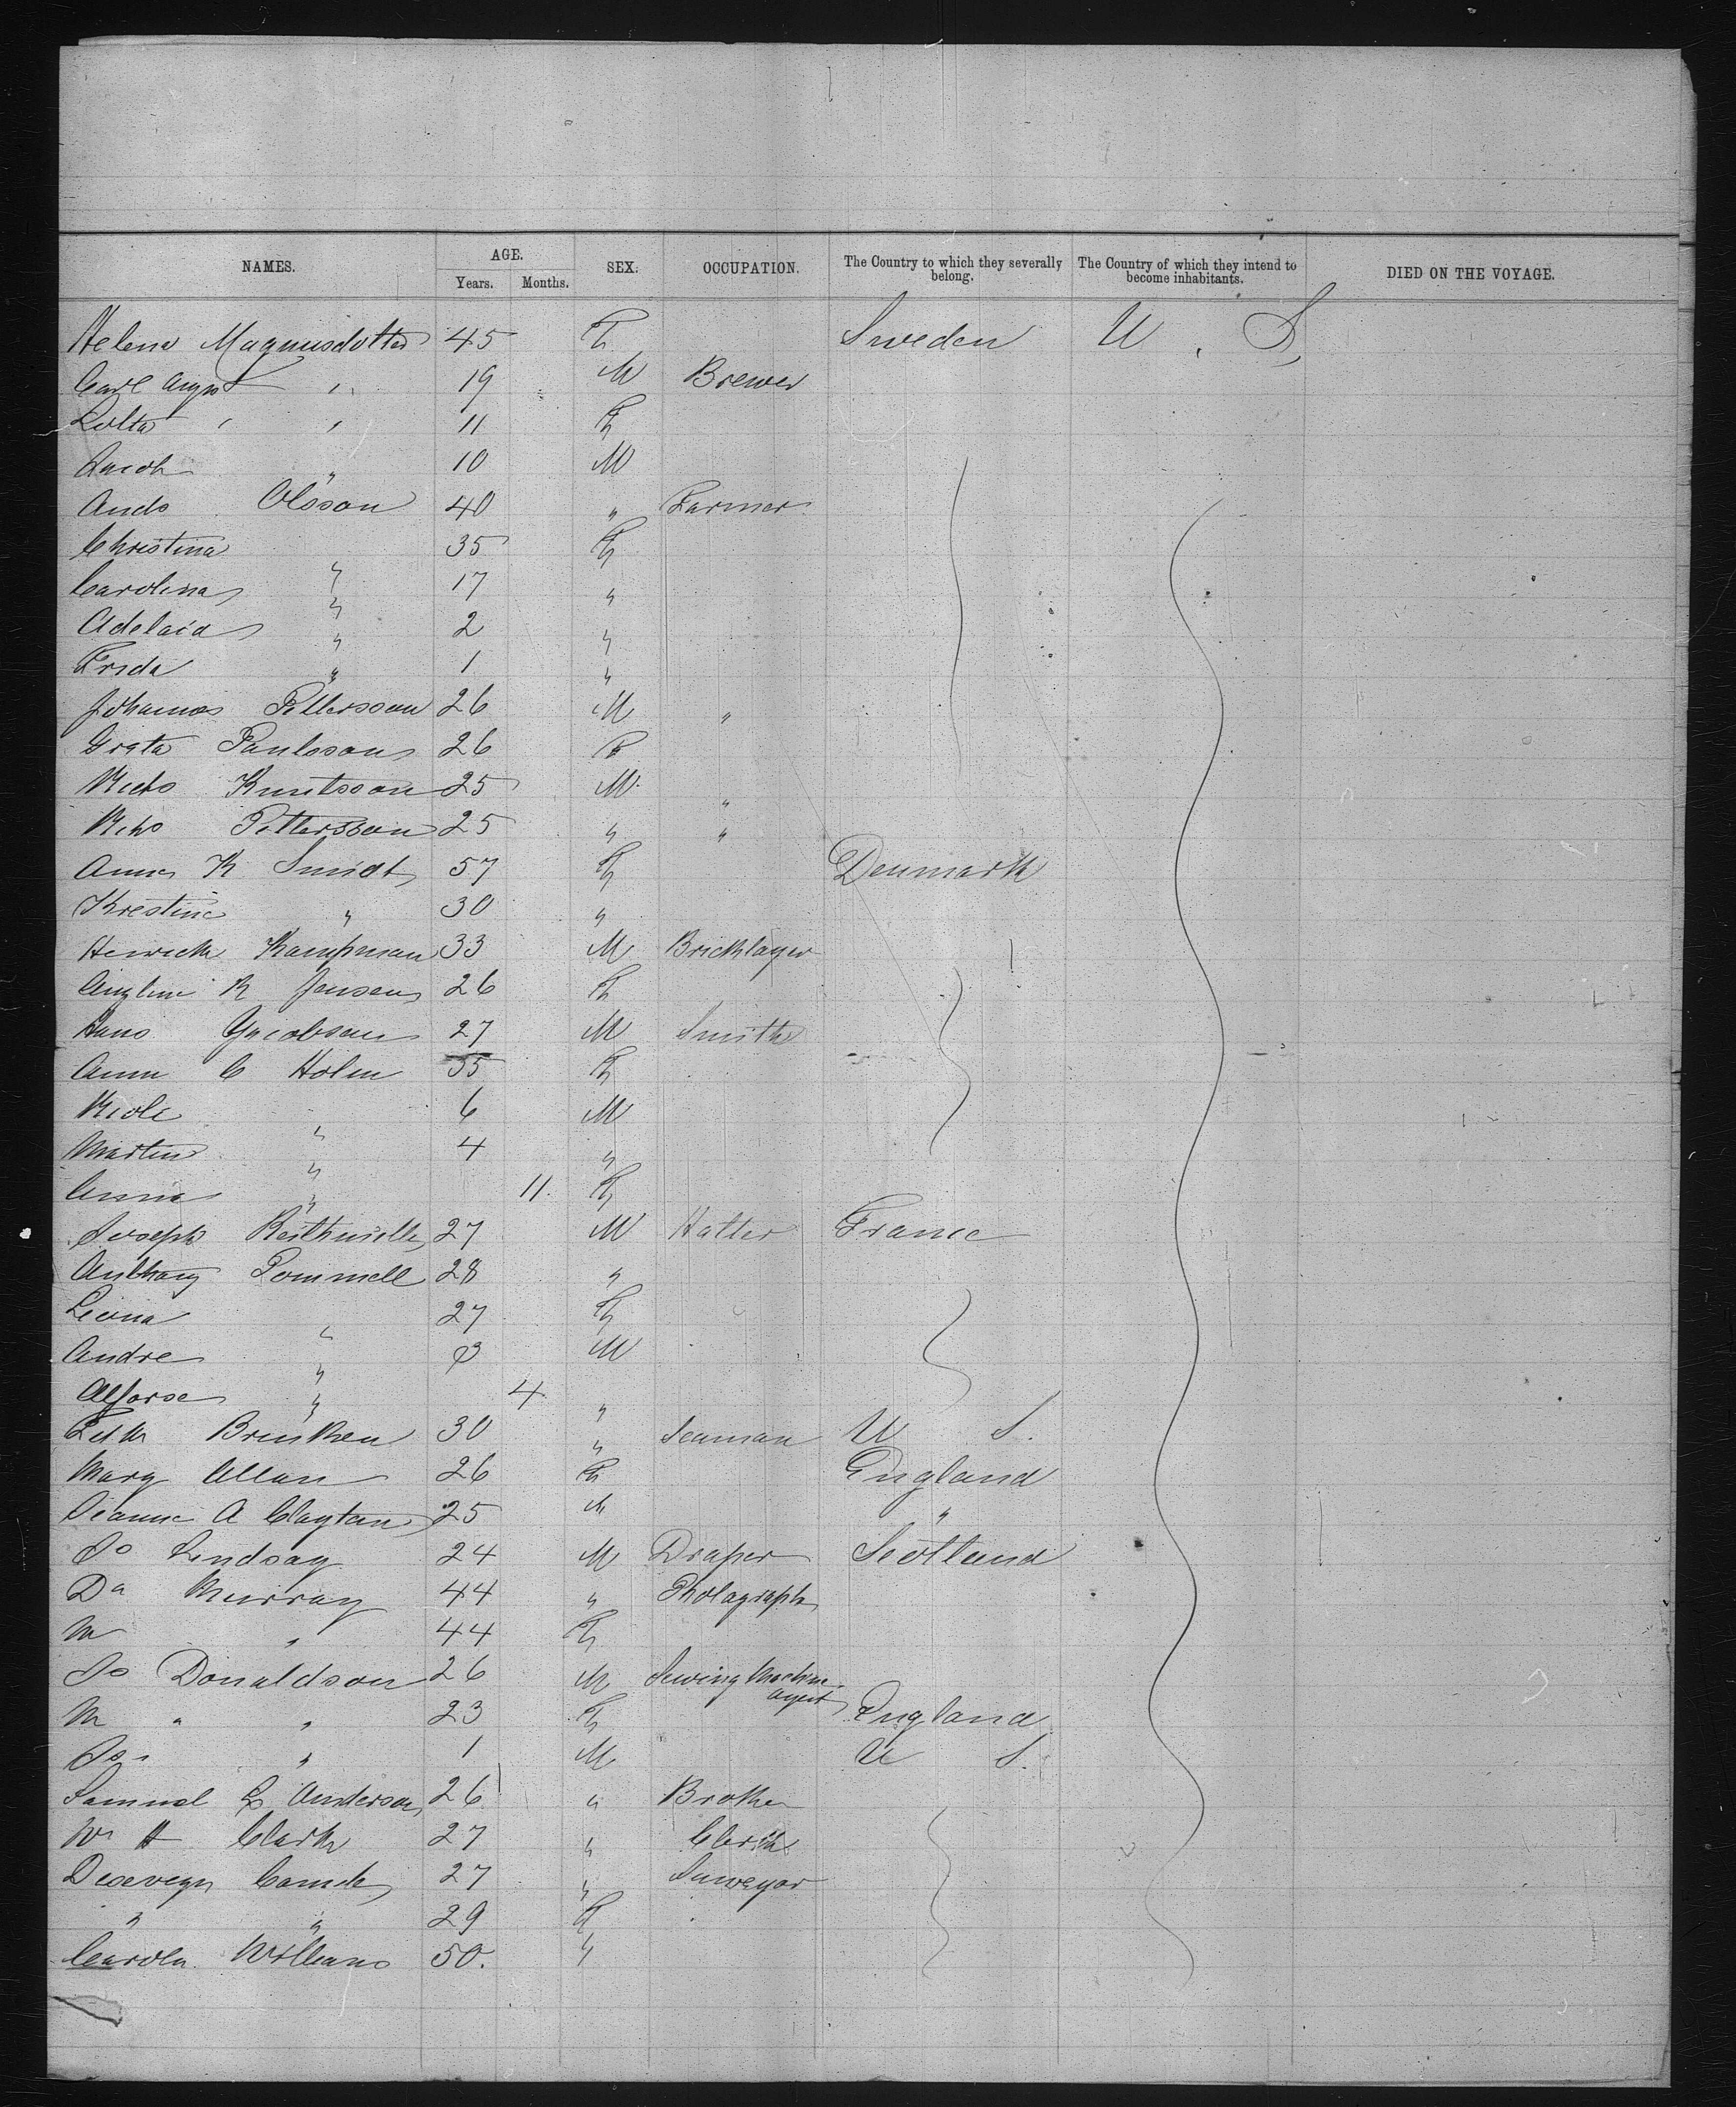 NAMES. AGE. Years. Months. SEX. OCCUPATION. The Country to which they severally belong. The Country of which they intend to become inhabitants. DIED ON THE VOYAGE.
Helena Magnusdotter 45 F Sweden U. S,
Carl Augst " 19 M Brewer
Lotta " " 11 F
Jacob " 10 M
Ands Olsson 40 " Farmer
Christina " 35 F
Carolina " 17 "
Adelaid " 2 "
Frida " 1 "
Johannes Pettersson 26 M "
Greta Paulsson 26 F
Knutsson 25 M "
Pettersson 25 " "
Anna K Smidt 57 F Denmark
Krestine " 30 "
Kampman 33 M Bricklayer
K Jensen 26 F
Hans Jacobsen 27 M Smith
Anna C Holm 35 F
" 6 M
Martin " 4 "
Anna " 11. F
Joseph 27 M Hatter France
Anthony Pommell 28 "
Leona " 27 F
Andre " 3 M
" 4 "
Brinken 30 " Seaman U S.
Mary Allan 26 F England
A Claytan 25 "
Jo Lindsay 24 M Draper Scotland
Da Murray 44 " Photograph
M " 44 F
Jo Donaldson 26 M Sewing Machine
agent
M " " 23 F England
Jo " 1 M U S.
Samuel Anderson 26 " Broker
Wm H Clark 27 " Clerk
27 " Surveyor
" " 29 F
Carola Williams 50. "